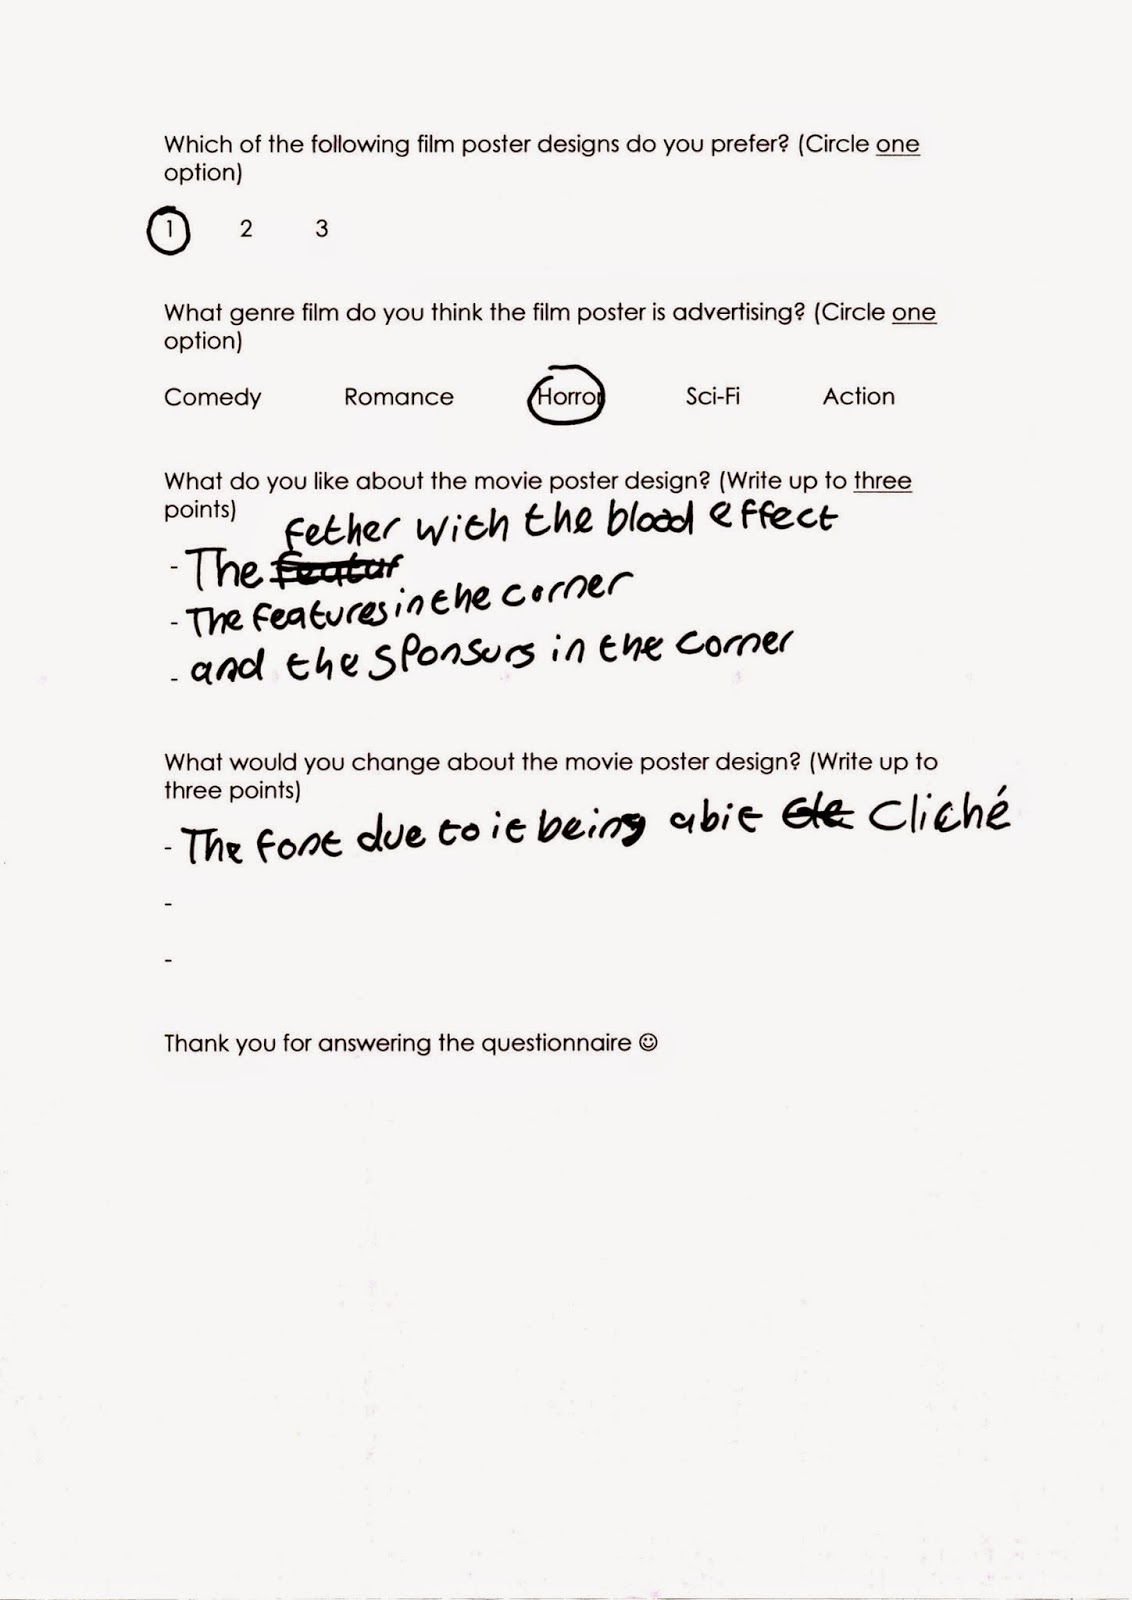 Which of the following film poster designs do you prefer? (Circle one
option)
1 2 3
What genre film do you think the film poster is advertising? (Circle one
option)
Comedy Romance Horror Sci-Fi Action
What do you like about the movie poster design? (Write up to three
points)
fether with the blood effect
- The featur
- The features in the corner
- and the sponsurs in the corner
What would you change about the movie poster design? (Write up to
three points)
- The font due to it being abit Cliché
-
-
Thank you for answering the questionnaire ☺